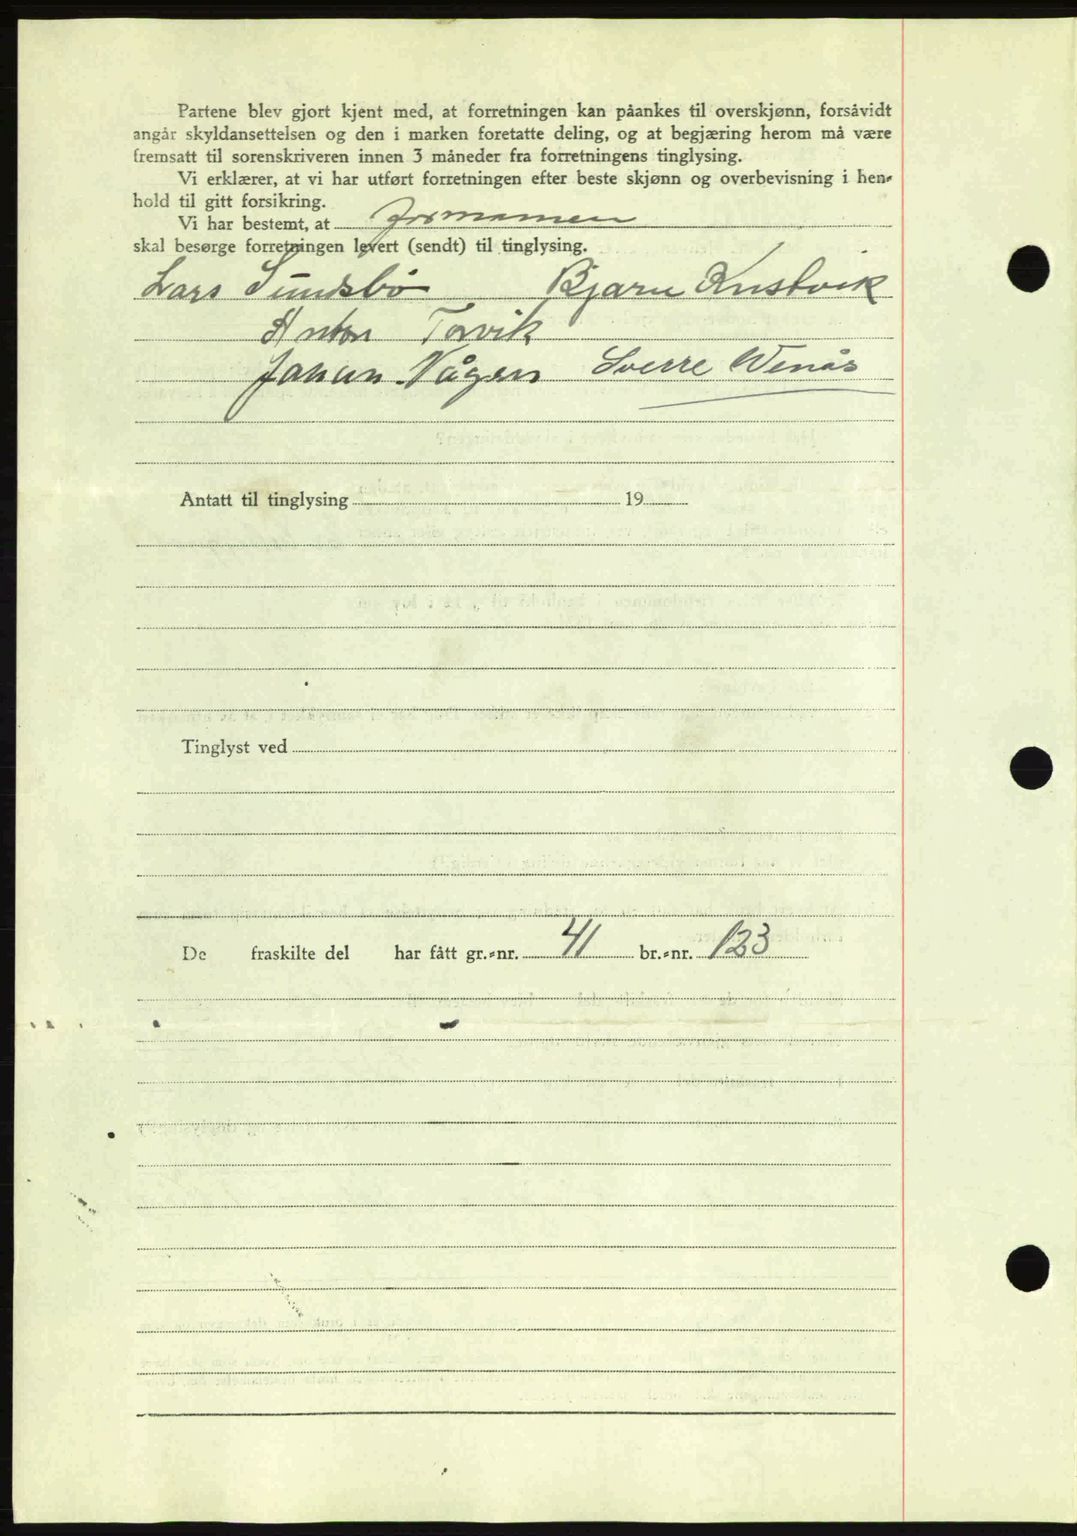 Partene blev gjort kjent med, at forretningen kan påankes til overskjønn, forsåvidt
angår skyldansettelsen og den i marken foretatte deling, og at begjæring herom må være
fremsatt til sorenskriveren innen 3 måneder fra forretningens tinglysing.
Vi erklærer, at vi har utført forretningen efter beste skjønn og overbevisning i hen-
hold til gitt forsikring.
Vi har bestemt, at formannen
skal besørge forretningen levert (sendt) til tinglysing.
Lars Sundsbö Bjarne Kustvik
Anton Torvik
Johan Vågen Sverre Wenås
Antatt til tinglysing 19
Tinglyst ved
De fraskilte del har fått gr.-nr. 41 br.-nr. 123